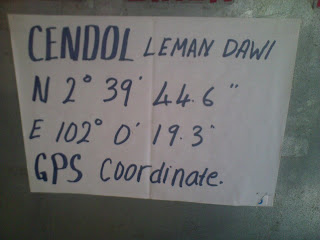 CENDOL LEMAN DAWI
N 2° 39' 44.6"
E 102° 0' 19.3"
GPS Coordinate.